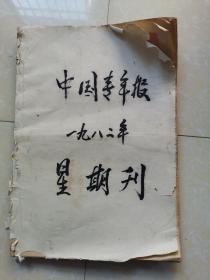 中国青年报
一九八二年
星期刊